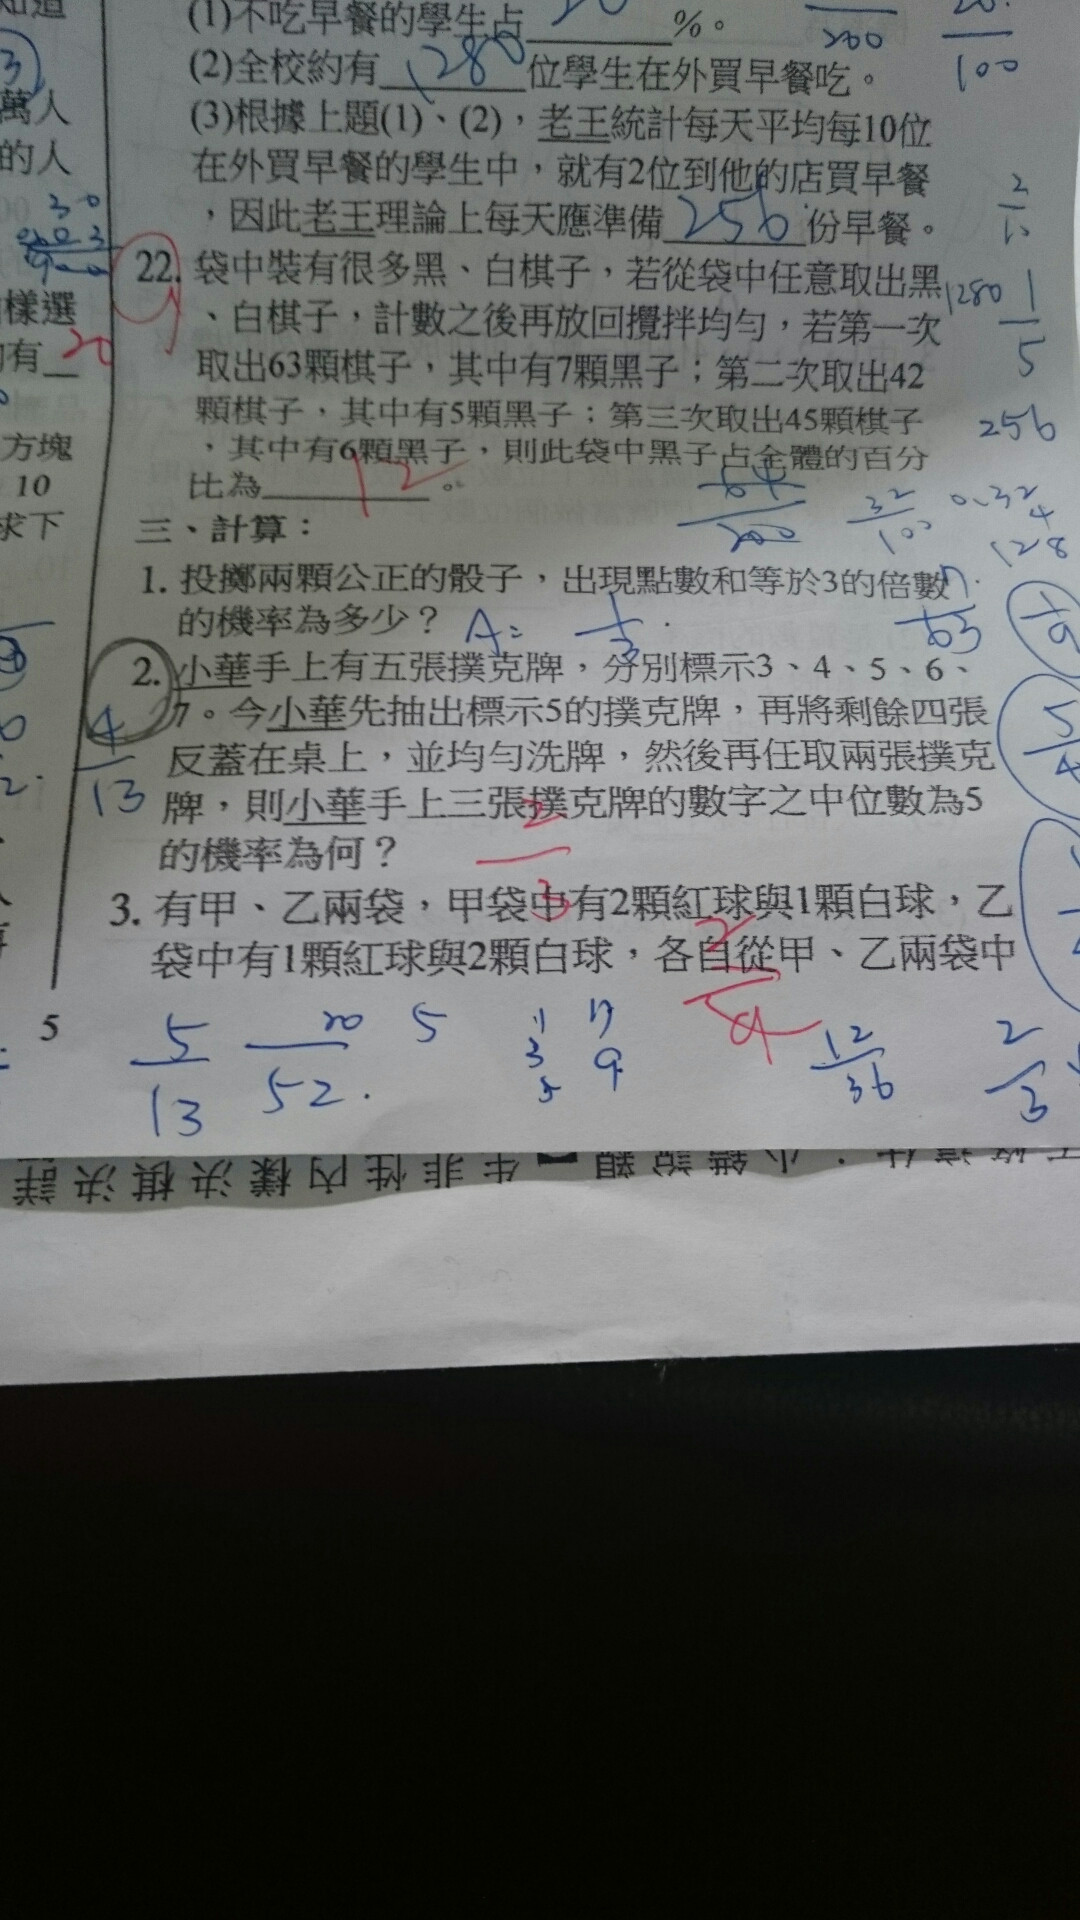 (1)不吃早餐的學生占 20 %。
(2)全校約有 1280 位學生在外買早餐吃。
(3)根據上題(1)、(2),老王統計每天平均每10位
在外買早餐的學生中,就有2位到他的店買早餐
,因此老王理論上每天應準備 256 份早餐。
22. 袋中裝有很多黑、白棋子,若從袋中任意取出黑
、白棋子,計數之後再放回攪拌均勻,若第一次
取出63顆棋子,其中有7顆黑子;第二次取出42
顆棋子,其中有5顆黑子;第三次取出45顆棋子
,其中有6顆黑子,則此袋中黑子占全體的百分
比為 12 。
三、計算:
1. 投擲兩顆公正的骰子,出現點數和等於3的倍數
的機率為多少? A= 1/3
2. 小華手上有五張撲克牌,分別標示3、4、5、6、
7。今小華先抽出標示5的撲克牌,再將剩餘四張
反蓋在桌上,並均勻洗牌,然後再任取兩張撲克
牌,則小華手上三張撲克牌的數字之中位數為5
的機率為何? 2/3
3. 有甲、乙兩袋,甲袋中有2顆紅球與1顆白球,乙
袋中有1顆紅球與2顆白球,各自從甲、乙兩袋中
萬人
的人
樣選
有 20
方塊
10
求下
5
200
100
2/10
1280 1/5
256
64/200
32/100
0.32
4
128
63
4/13
5/13
20/52.
5
12/36
2/3